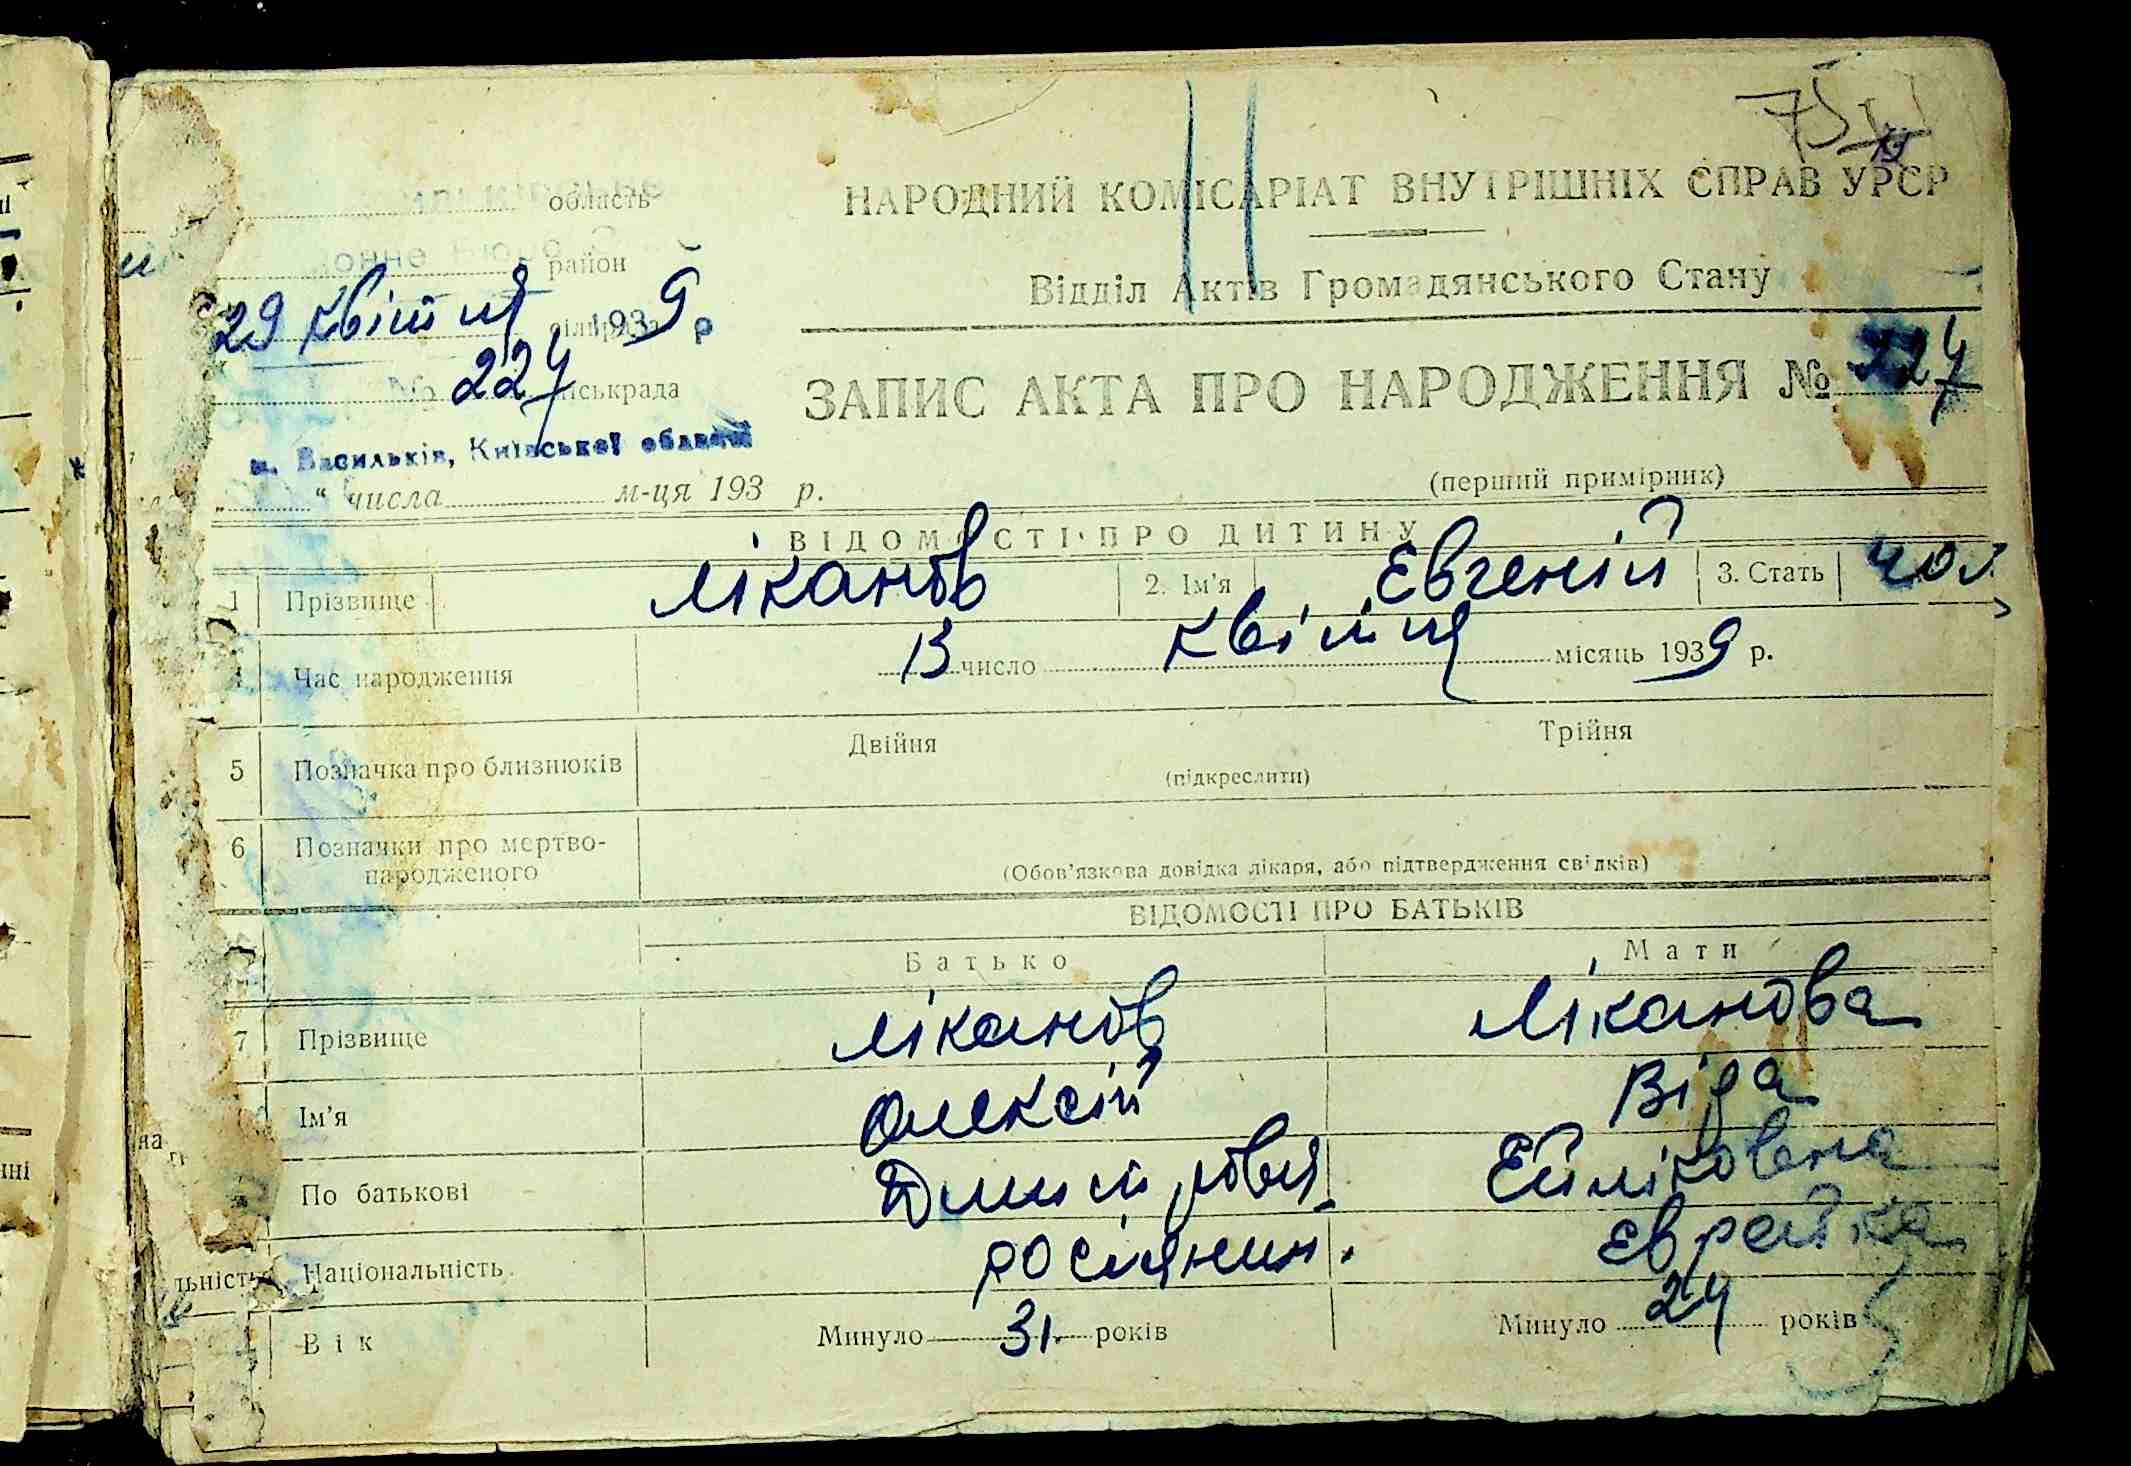 область
район
29 квітня 1939 р
сільрада
№ 224 міськрада
м. Васильків, Київської області
„ “ числа м-ця 193 р.
НАРОДНИЙ КОМІСАРІАТ ВНУТРІШНІХ СПРАВ УРСР
Відділ Актів Громадянського Стану
ЗАПИС АКТА ПРО НАРОДЖЕННЯ № 224
(перший примірник)
ВІДОМОСТІ ПРО ДИТИНУ
1 Прізвище Ліканов 2. Ім’я Євгеній 3. Стать чол.
4 Час народження 13 число квітня місяць 1939 р.
5 Позначка про близнюків Двійня Трійня
(підкреслити)
6 Позначки про мертво-
народженого
(Обов’язкова довідка лікаря, або підтвердження свідків)
ВІДОМОСТІ ПРО БАТЬКІВ
Батько Мати
7 Прізвище Ліканов Ліканова
Ім’я Олексій Віра
По батькові
Національність росіянин. Єврейка
Вік Минуло 31. років Минуло 24 років